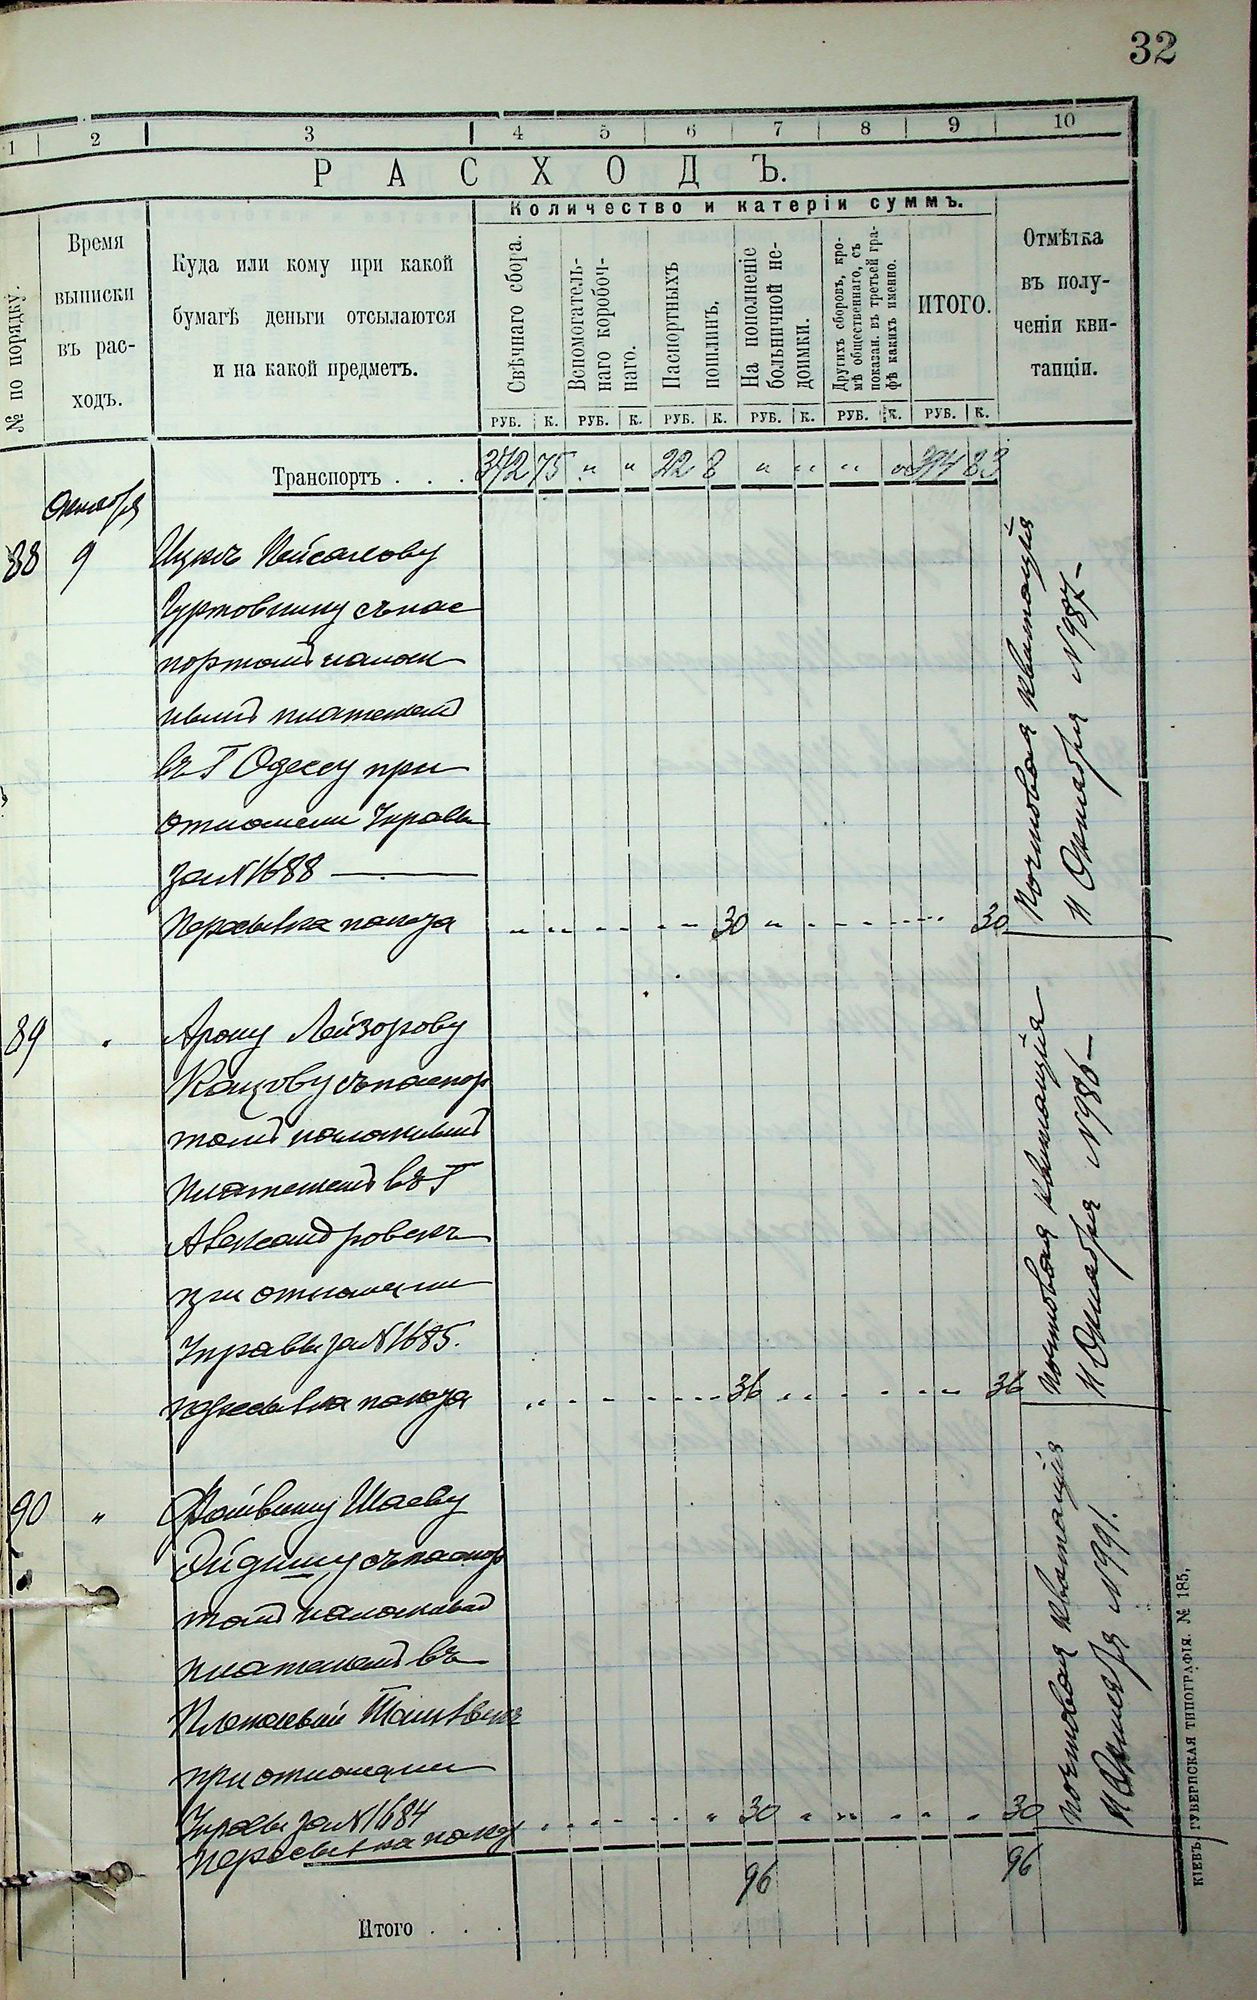 32
1 2 3 4 5 6 7 8 9 10
РАСХОДЪ.
№ по порядку.
Время
выписки
въ рас-
ходъ.
Куда или кому при какой
бумагѣ деньги отсылаются
и на какой предметъ.
Количество и катеріи суммъ.
Свѣчнаго сбора.
Вспомогатель-
наго коробоч-
наго.
Паспортныхъ
пошлинъ.
На пополненіе
больничной не-
доимки.
Другихъ сборовъ, кро-
мѣ общественнаго, съ
показан. въ третьей гра-
фѣ какихъ именно.
ИТОГО.
Отмѣтка
въ полу-
ченіи кви-
танціи.
РУБ. К. РУБ. К. РУБ. К. РУБ. К. РУБ. К. РУБ. К.
Транспортъ . . . 372 75 " " 22 8 " " " " 394 83
Октября
88 9 Ицкѣ Пейсахову
Гуртовнику съ пас
портомъ налож
нымъ платежомъ
въ Г Одессу при
отношеніи Управы
за N 1688
Пересылка пакета 30 30
Почтовая квитанція
11 Октября N 987
89 Арону Лейзорову
Кацову съ паспор
томъ наложнымъ
платежомъ въ Г
Александровскъ
при отношеніи
Управы за N 1685.
пересылка пакета 36 36
Почтовая квитанція
11 Октября N 986
90 " Файвишу Шаеву
съ паспор
томъ
платежомъ въ
при отношеніи
Управы за N 1684 30 30
Пересылка пакета
Почтовая квитанція
11 Октября N 991.
96 96
Итого . . .
КІЕВЪ, ГУБЕРНСКАЯ ТИПОГРАФІЯ. № 185,